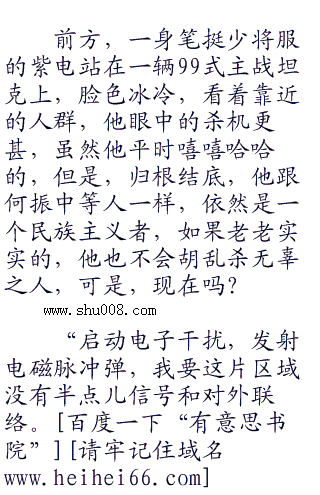 前方，一身笔挺少将服
的紫电站在一辆99式主战坦
克上，脸色冰冷，看着靠近
的人群，他眼中的杀机更
甚，虽然他平时嘻嘻哈哈
的，但是，归根结底，他跟
何振中等人一样，依然是一
个民族主义者，如果老老实
实的，他也不会胡乱杀无辜
之人，可是，现在吗？
www.shu008.com
“启动电子干扰，发射
电磁脉冲弹，我要这片区域
没有半点儿信号和对外联
络。[百度一下“有意思书
院”][请牢记住域名
www.heihei66.com]